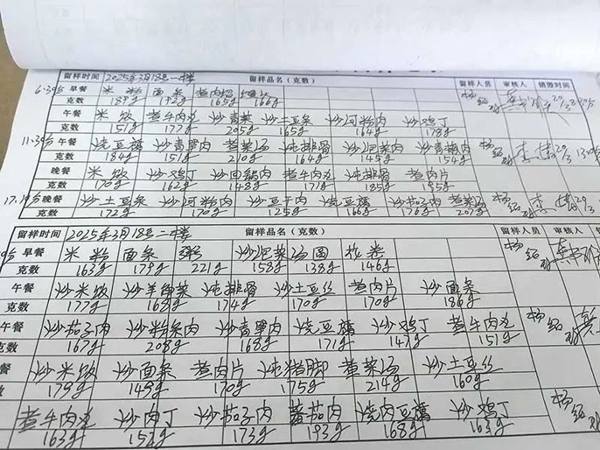 留样时间 2025年3月18日一楼 留样品名（克数） 留样人员 审核人 销毁时间
6:30分 早餐 米粉 面条 煮肉 馒头
克数 187g 192g 165g 166g
午餐 米饭 煮牛肉丸 炒青菜 炒土豆条 炒河粉肉 炒鸡丁
克数 151g 177g 205g 165g 164g 178g
11:30分 午餐 烧豆腐 炒青果肉 煮菜汤 炖排骨 炒泡菜肉 炒青椒肉
克数 184g 151g 210g 164g 145g 154g
晚餐 米饭 炒鸡丁 炒回锅肉 煮牛肉丸 炖排骨 煮肉片
克数 170g 162g 148g 171g 185g 195g
晚餐 炒土豆条 炒河粉肉 炒豆干肉 烧豆腐 炒茄子肉 煮菜汤
克数 172g 170g 125g 166g 176g 207g
留样时间 2025年3月18日二楼 留样品名（克数） 留样人员 审核人
早餐 米粉 面条 粥 炒泡菜 汤圆 花卷
克数 163g 179g 221g 158g 138g 146g
午餐 炒米饭 炒羊角菜 炖排骨 炒土豆丝 煮肉片 炒面条
克数 177g 168g 174g 170g 170g 186g
午餐 炒茄子肉 炒粉条肉 炒青果肉 烧豆腐 炒鸡丁 煮牛肉丸
克数 167g 208g 168g 171g 147g 151g
炒米饭 炒面条 煮肉片 炖猪脚 煮菜汤 炒土豆丝
179g 149g 170g 175g 214g 160g
煮牛肉丸 炒肉丁 炒茄子肉 蕃茄肉 烧肉豆腐 炒鸡丁
163g 152g 173g 193g 168g 163g